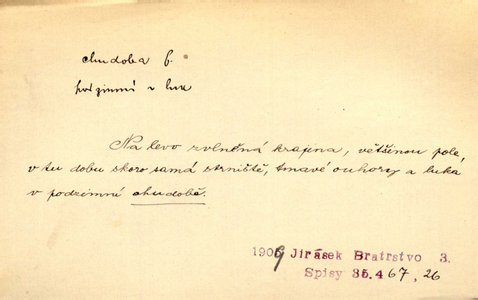 chudoba f.
podzimní v luk
Na levo zvlněná krajina, většinou pole,
v tu dobu skoro samá strniště, tmavé ouhory a luka
v podzimní chudobě.
1909 Jirásek Bratrstvo 3.
Spisy 35.467, 26